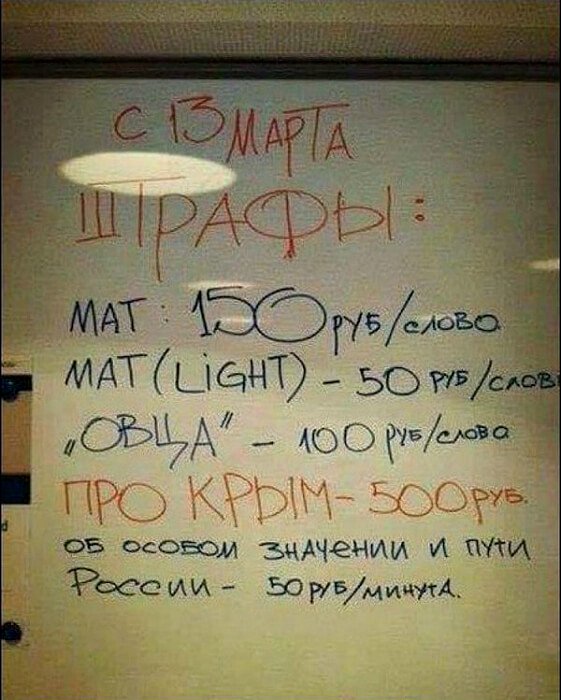 С 13 МАРТА
ШТРАФЫ:
МАТ: 150 РУБ/слово
МАТ (LiGHT) - 50 РУБ/слов
„ОВЦА" - 100 РУБ/слово
ПРО КРЫМ - 500 РУБ.
ОБ ОСОБОМ ЗНАЧЕНИИ И ПУТИ
РОССИИ - 50 РУБ/МИНУТА.